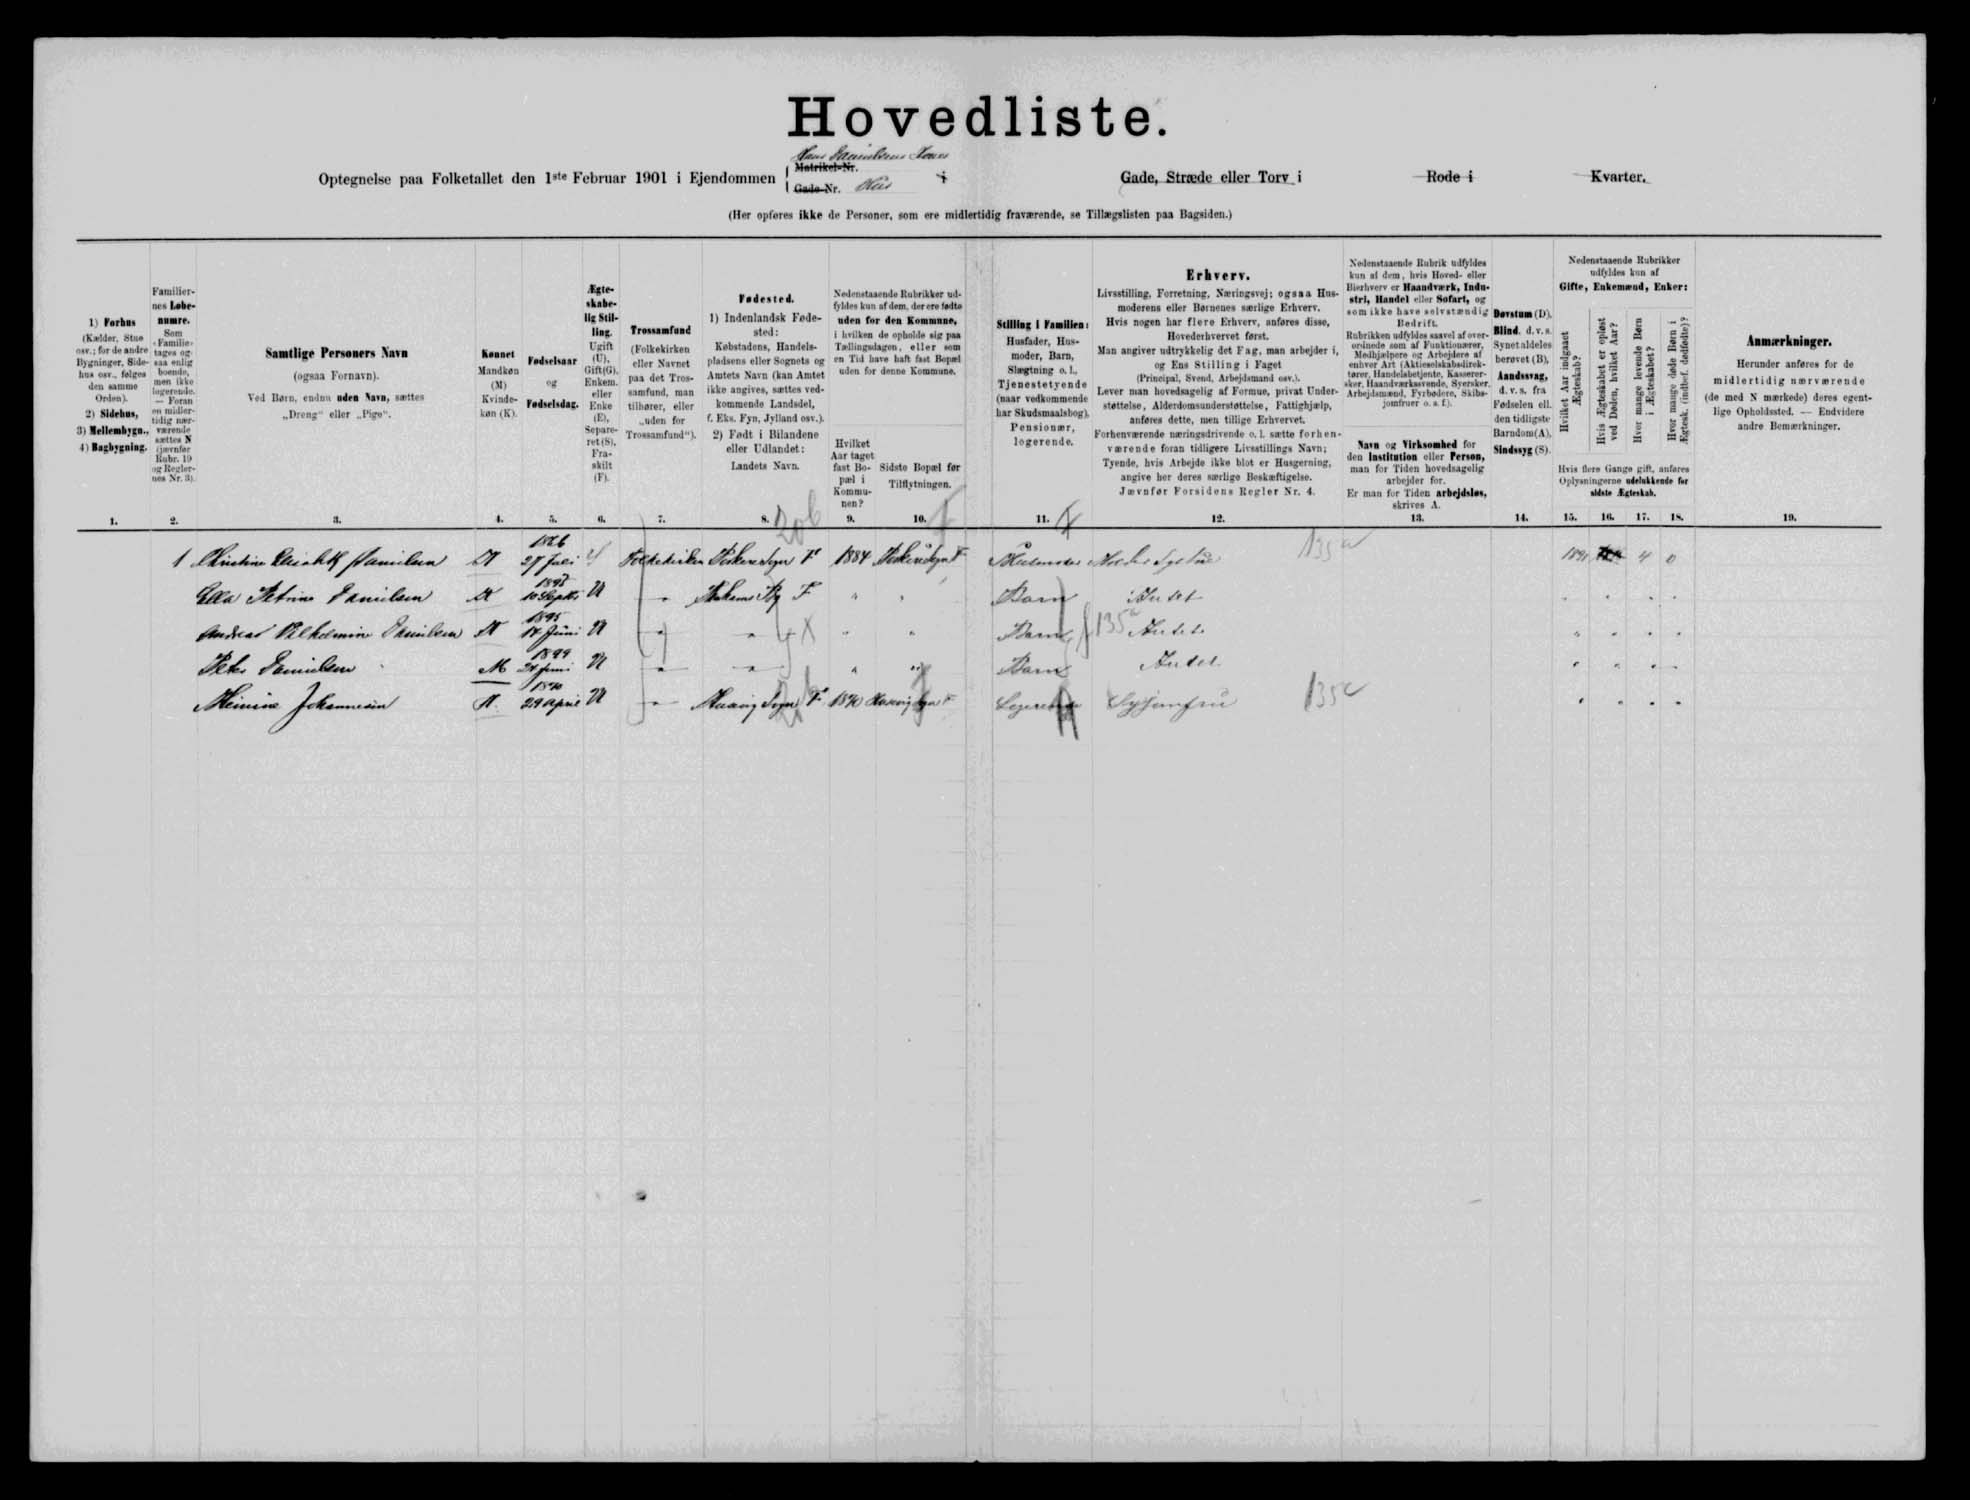 Hovedliste.
Optegnelse paa Folketallet den 1ste Februar 1901 i Ejendommen
Hans Danielsens Kones
Matrikel-Nr.
Gade-Nr. Hus i
Gade, Stræde eller Torv i Rode i Kvarter.
(Her opføres ikke de Personer, som ere midlertidig fraværende, se Tillægslisten paa Bagsiden.)
1) Forhus
(Kælder, Stue
osv.; for de andre
Bygninger, Side-
hus osv., følges
den samme
Orden).
2) Sidehus,
3) Mellembygn.,
4) Bagbygning.
Familier-
nes Løbe-
numre.
Som
»Familie«
tages og-
saa enlig
boende,
men ikke
logerende.
— Foran
en midler-
tidig nær-
værende
sættes N
(jævnfør
Rubr. 19
og Regler-
nes Nr. 3).
Samtlige Personers Navn
(ogsaa Fornavn).
Ved Børn, endnu uden Navn, sættes
„Dreng“ eller „Pige“.
Kønnet
Mandkøn
(M)
Kvinde-
køn (K).
Fødselsaar
og
Fødselsdag.
Ægte-
skabe-
lig Stil-
ling.
Ugift
(U),
Gift(G),
Enkem.
eller
Enke
(E),
Separe-
ret (S),
Fra-
skilt
(F).
Trossamfund
(Folkekirken
eller Navnet
paa det Tros-
samfund, man
tilhører, eller
„uden for
Trossamfund“).
Fødested.
1) Indenlandsk Føde-
sted:
Købstadens, Handels-
pladsens eller Sognets og
Amtets Navn (kan Amtet
ikke angives, sættes ved-
kommende Landsdel,
f. Eks. Fyn, Jylland osv.).
2) Født i Bilandene
eller Udlandet:
Landets Navn.
Nedenstaaende Rubrikker ud-
fyldes kun af dem, der ere fødte
uden for den Kommune,
i hvilken de opholde sig paa
Tællingsdagen, eller som
en Tid have haft fast Bopæl
uden for denne Kommune.
Hvilket
Aar taget
fast Bo-
pæl i
Kommu-
nen?
Sidste Bopæl før
Tilflytningen.
Stilling i Familien:
Husfader, Hus-
moder, Barn,
Slægtning o. l.,
Tjenestetyende
(naar vedkommende
har Skudsmaalsbog),
Pensionær,
logerende.
Erhverv.
Livsstilling, Forretning, Næringsvej; ogsaa Hus-
moderens eller Børnenes særlige Erhverv.
Hvis nogen har flere Erhverv, anføres disse,
Hovederhvervet først.
Man angiver udtrykkelig det Fag, man arbejder i,
og Ens Stilling i Faget
(Principal, Svend, Arbejdsmand osv.).
Lever man hovedsagelig af Formue, privat Under-
støttelse, Alderdomsunderstøttelse, Fattighjælp,
anføres dette, men tillige Erhvervet.
Forhenværende næringsdrivende o. l. sætte forhen-
værende foran tidligere Livsstillings Navn;
Tyende, hvis Arbejde ikke blot er Husgerning,
angive her deres særlige Beskæftigelse.
Jævnfør Forsidens Regler Nr. 4.
Nedenstaaende Rubrik udfyldes
kun af dem, hvis Hoved- eller
Bierhverv er Haandværk, Indu-
stri, Handel eller Søfart, og
som ikke have selvstændig
Bedrift.
Rubrikken udfyldes saavel af over-
ordnede som af Funktionærer,
Medhjælpere og Arbejdere af
enhver Art (Aktieselskabsdirek-
tører, Handelsbetjente, Kasserer-
sker, Haandværkssvende, Syersker,
Arbejdsmænd, Fyrbødere, Skibs-
jomfruer o. s. f.).
Navn og Virksomhed for
den Institution eller Person,
man for Tiden hovedsagelig
arbejder for.
Er man for Tiden arbejdsløs,
skrives A.
Døvstum (D),
Blind, d. v. s.
Synet aldeles
berøvet (B),
Aandssvag,
d. v. s. fra
Fødselen ell.
den tidligste
Barndom (A),
Sindssyg (S).
Nedenstaaende Rubrikker
udfyldes kun af
Gifte, Enkemænd, Enker:
Hvilket Aar indgaaet
Ægteskab?
Hvis Ægteskabet er opløst
ved Døden, hvilket Aar?
Hvor mange levende Børn
i Ægteskabet?
Hvor mange døde Børn i
Ægtesk. (indbef. dødfødte)?
Hvis flere Gange gift, anføres
Oplysningerne udelukkende for
sidste Ægteskab.
Anmærkninger.
Herunder anføres for de
midlertidig nærværende
(de med N mærkede) deres egent-
lige Opholdssted. — Endvidere
andre Bemærkninger.
1. 2. 3. 4. 5. 6. 7. 8. 9. 10. 11. 12. 13. 14. 15. 16. 17. 18. 19.
20b
1 Danielsen K 27 Juli Folkekirken Sogn F 1884 Husmoder 135a 4 0
Ella Petrine Danielsen K 10 Septbr U " By F " " Barn Andet
Andrea Vilhelmine Danielsen K 1895 14 Juni U " " " " Barn 135a Andet
Peter Danielsen M 1899 Juni U " " " " Barn Andet
Johannesen K. 1870 29 April U " Sogn F Syjomfru 135c